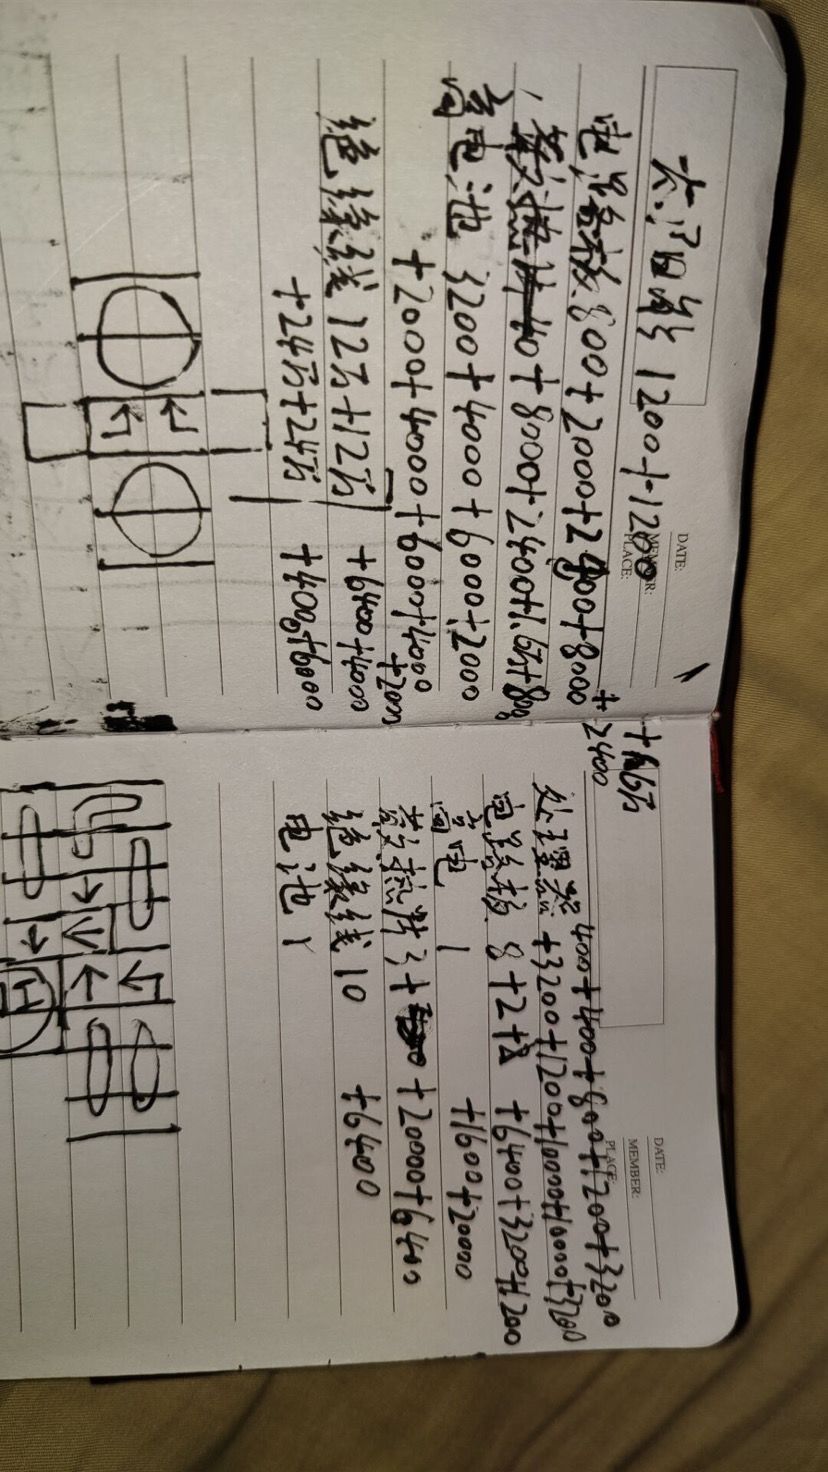 DATE:
MEMBER:
PLACE:
太阳能 1200+1200
电路板 800+2000+2400+8000+2400
+1.6万
散热片 40+8000+2400+1.6万+800
蓄电池 3200+4000+6000+2000
+2000+4000+6000+4000
+2000
绝缘线 12万+12万 +6400+4000
+24万+24万 +4000+6000
DATE:
MEMBER:
PLACE:
处理器 400+400+800+1200+3200
+3200+1200+10000+10000+3200
电路板 8+2+2 +6400+3200+1200
蓄电 1 +1600+20000
散热片 3+ +20000+6400
绝缘线 10 +6400
电池 1